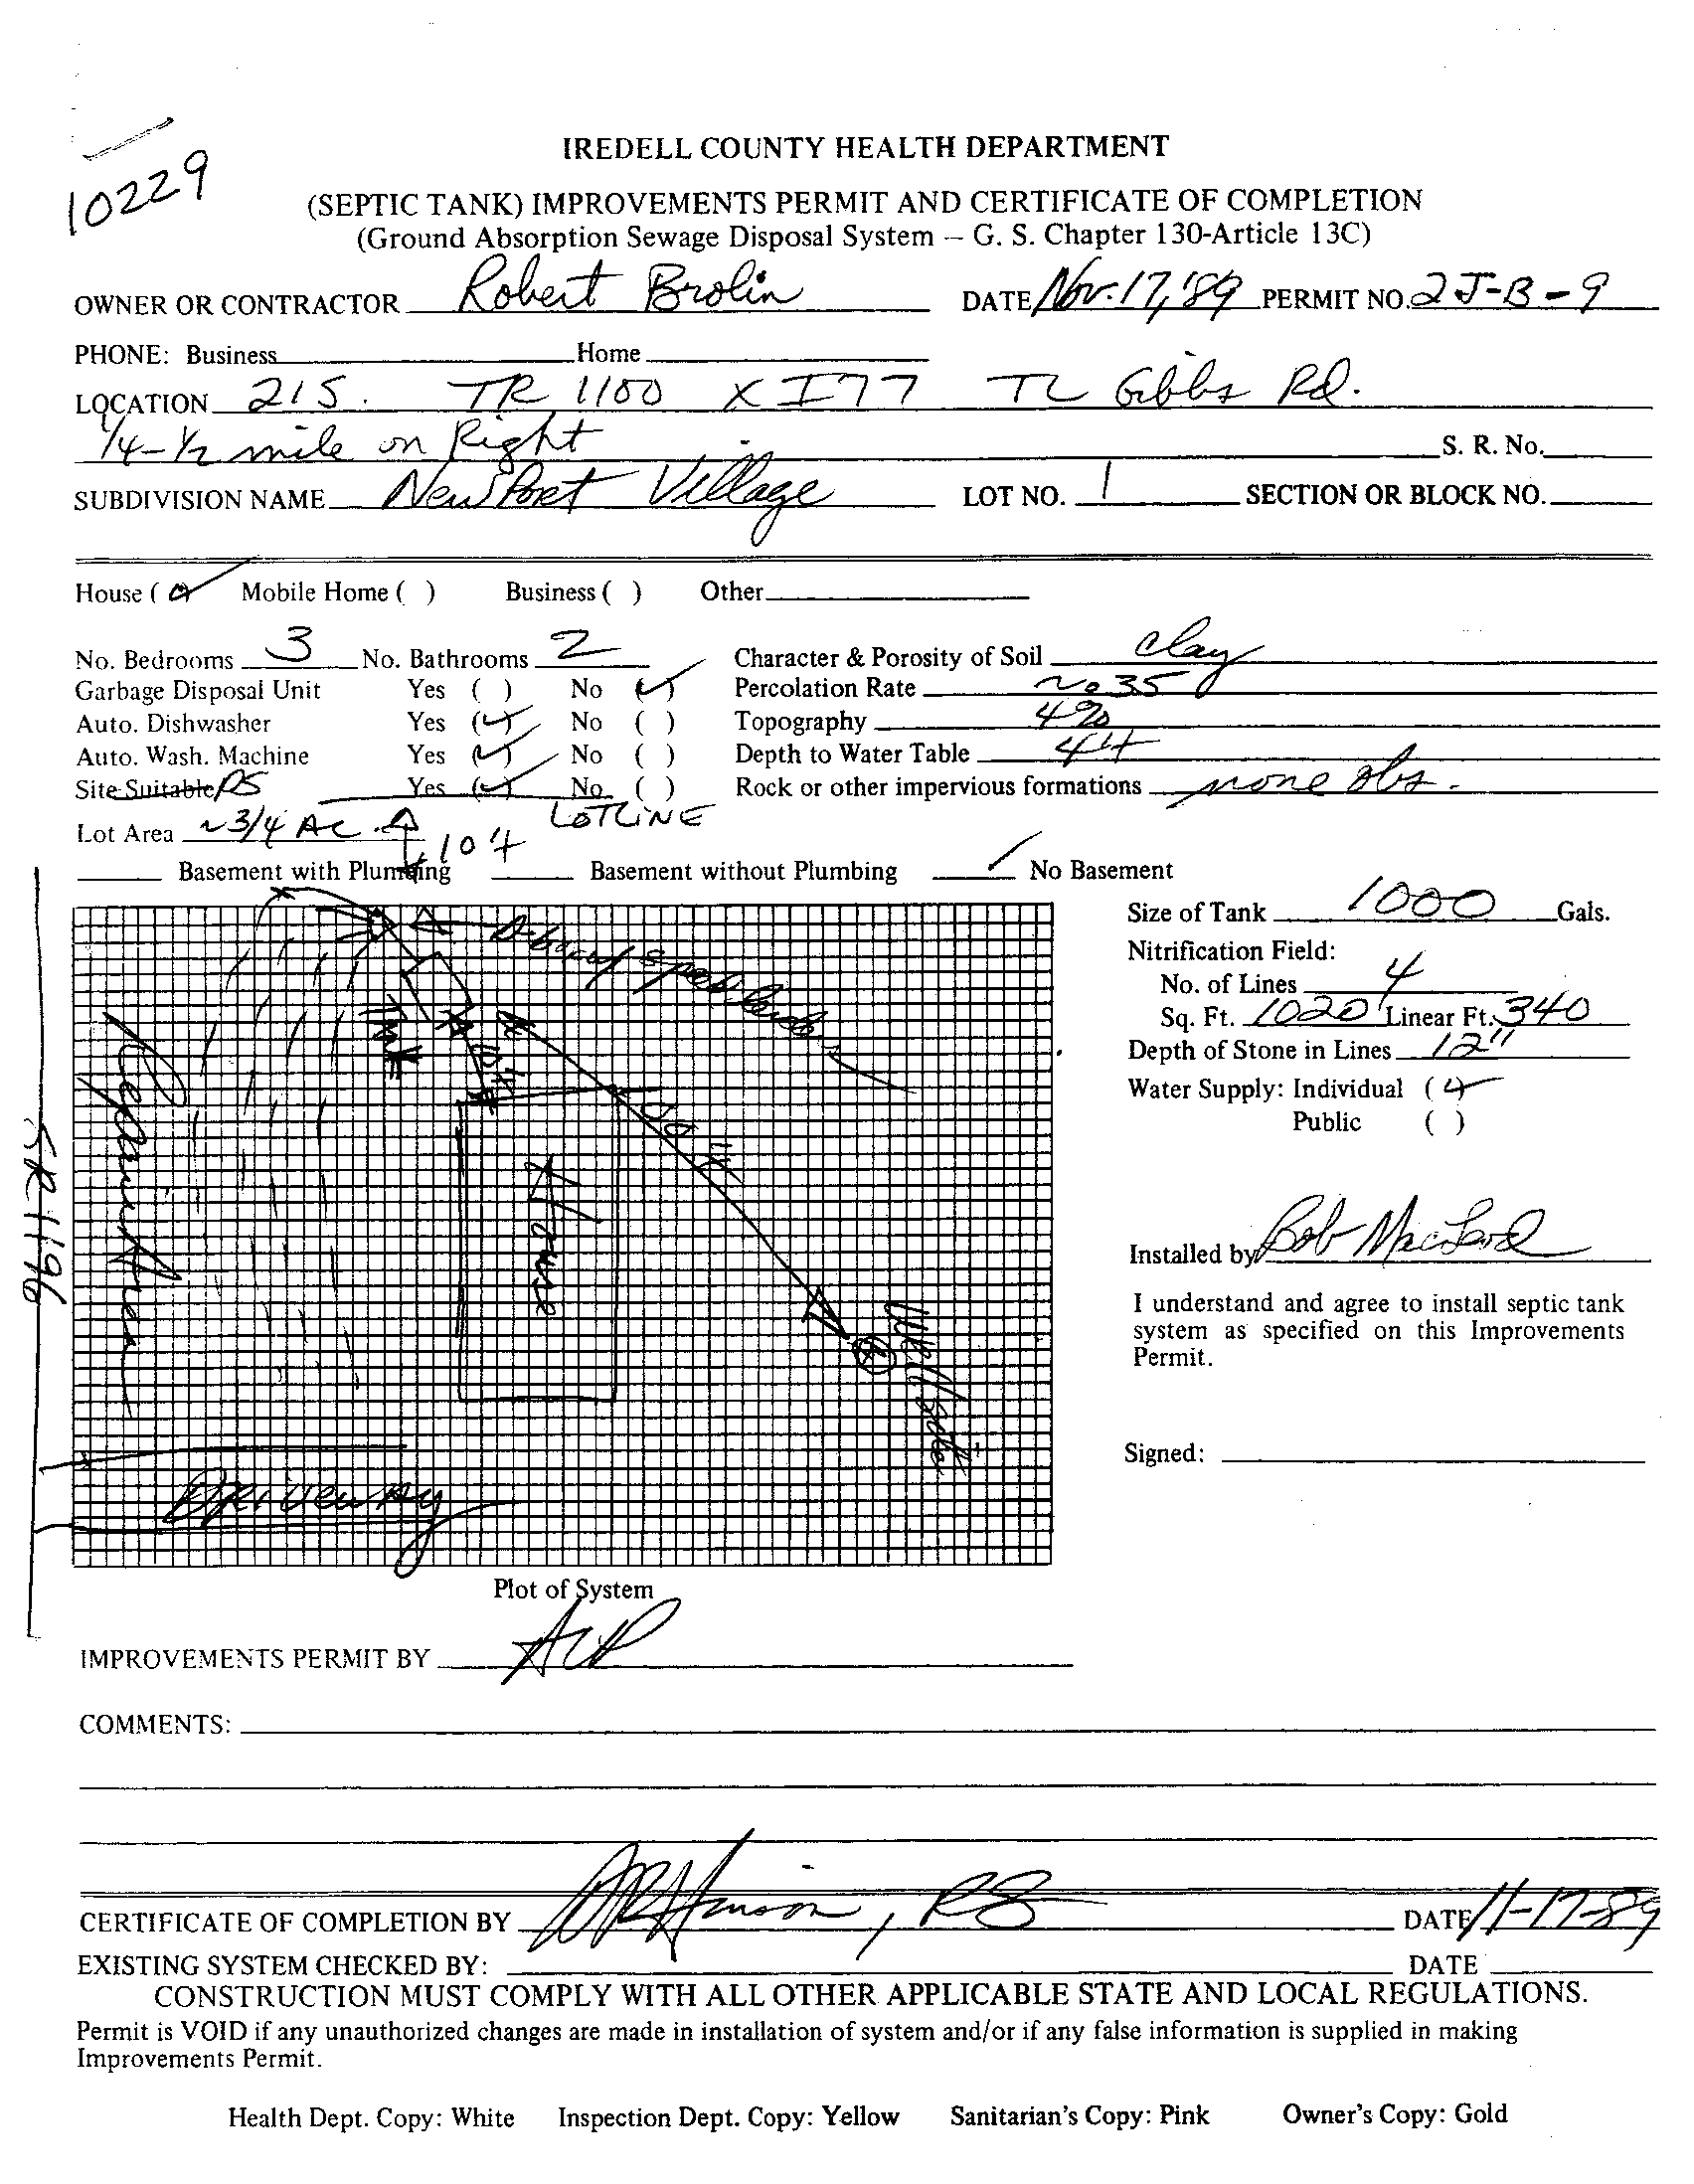 10229
IREDELL COUNTY HEALTH DEPARTMENT
(SEPTIC TANK) IMPROVEMENTS PERMIT AND CERTIFICATE OF COMPLETION
(Ground Absorption Sewage Disposal System – G. S. Chapter 130-Article 13C)
OWNER OR CONTRACTOR Robert Brolin DATE Nov. 17, '89 PERMIT NO. 2J-B-9
PHONE: Business Home
LOCATION 21S. TR 1100 X I77 TL Gibbs Rd.
1/4-1/2 mile on Right S. R. No.
SUBDIVISION NAME NewPort Village LOT NO. 1 SECTION OR BLOCK NO.
House (✓) Mobile Home ( ) Business ( ) Other
No. Bedrooms 3 No. Bathrooms 2 Character & Porosity of Soil clay
Garbage Disposal Unit Yes ( ) No (✓) Percolation Rate ~.35
Auto. Dishwasher Yes (✓) No ( ) Topography 4%
Auto. Wash. Machine Yes (✓) No ( ) Depth to Water Table 4'+
Site Suitable PS Yes (✓) No ( ) Rock or other impervious formations none obs.
Lot Area ~3/4 Ac 10'+ LOTLINE
Basement with Plumbing Basement without Plumbing ✓ No Basement
Size of Tank 1000 Gals.
Nitrification Field:
No. of Lines 4
Sq. Ft. 1020 Linear Ft. 340
Depth of Stone in Lines 12"
Water Supply: Individual (✓)
Public ( )
D-box
Tank
10'+
House
Repair Area
SR 1196
Well site
Driveway
Installed by Bob MacLeod
I understand and agree to install septic tank
system as specified on this Improvements
Permit.
Signed:
Plot of System
IMPROVEMENTS PERMIT BY
COMMENTS:
CERTIFICATE OF COMPLETION BY , RS DATE 11-17-89
EXISTING SYSTEM CHECKED BY: DATE
CONSTRUCTION MUST COMPLY WITH ALL OTHER APPLICABLE STATE AND LOCAL REGULATIONS.
Permit is VOID if any unauthorized changes are made in installation of system and/or if any false information is supplied in making
Improvements Permit.
Health Dept. Copy: White Inspection Dept. Copy: Yellow Sanitarian's Copy: Pink Owner's Copy: Gold